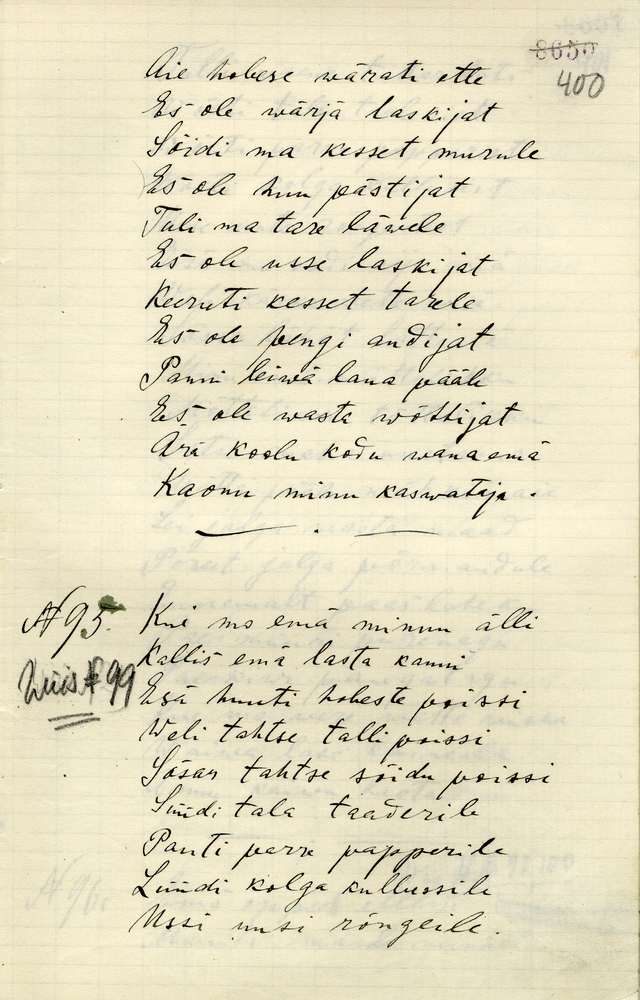 8650
400
Aie hobese wärati ette
Es ole wärjä laskijat
Sõidi ma kesset murule
Es ole huu pästijat
Tuli ma tare läwele
Es ole usse laskijat
Keeruti kesset tarele
Es ole pengi andijat
Panni leiwä laua pääle
Es ole wasta wõttijat
Ärä koolu kodu wanaemä
Kaonu minu kaswataja.
N 95. Kui ms emä minnu älli
Kallis emä lasta kanni
Wiis N 99
Esä huuti hobeste poissi
Weli tahtse talli poissi
Sõsar tahtse sõidu poissi
Sündi tala taaderile
Panti perre papperile
Lündi kolga kulluosile
Ussi uusi rõngeile.